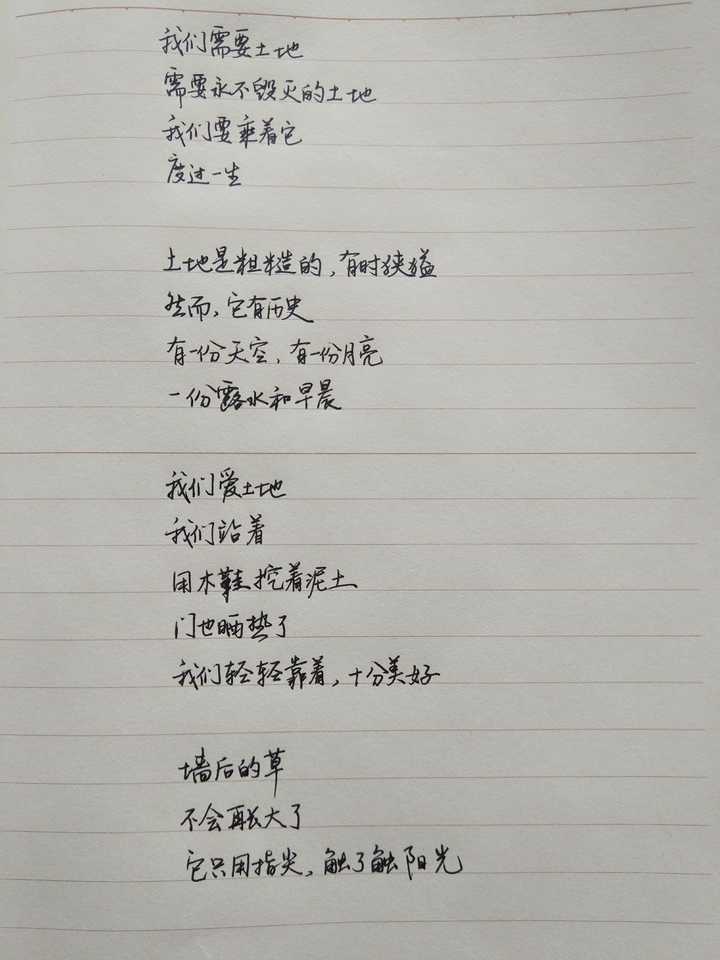 我们需要土地
需要永不毁灭的土地
我们要乘着它
度过一生
土地是粗糙的，有时狭隘
然而，它有历史
有一份天空，有一份月亮
一份露水和早晨
我们爱土地
我们站着
用木鞋挖着泥土
门也晒热了
我们轻轻靠着，十分美好
墙后的草
不会再长大了
它只用指尖，触了触阳光